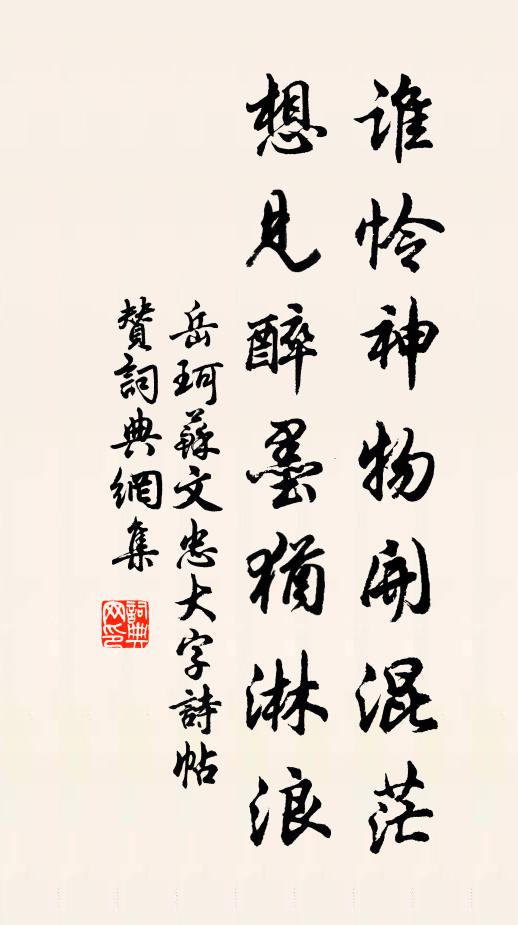 谁怜神物開混茫
想見醉墨猶淋浪
岳珂蘇文忠大字詩帖
贊詞典網集
詞典网印